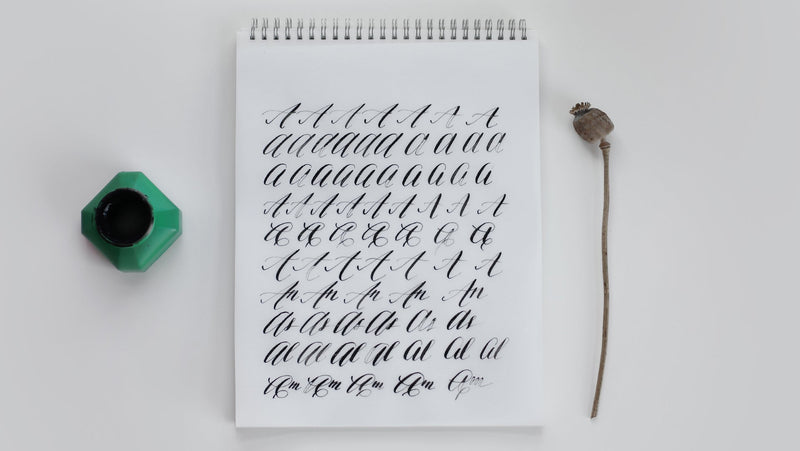 A A A A A A A
a a a a a a a a a a a a
a a a a a a a a a a a
A A A A A A A A A
A A A A A A A
A A A A A A A
An An An An An
As As As As As As
Al Al Al Al Al Al Al
Am Am Am Am Am